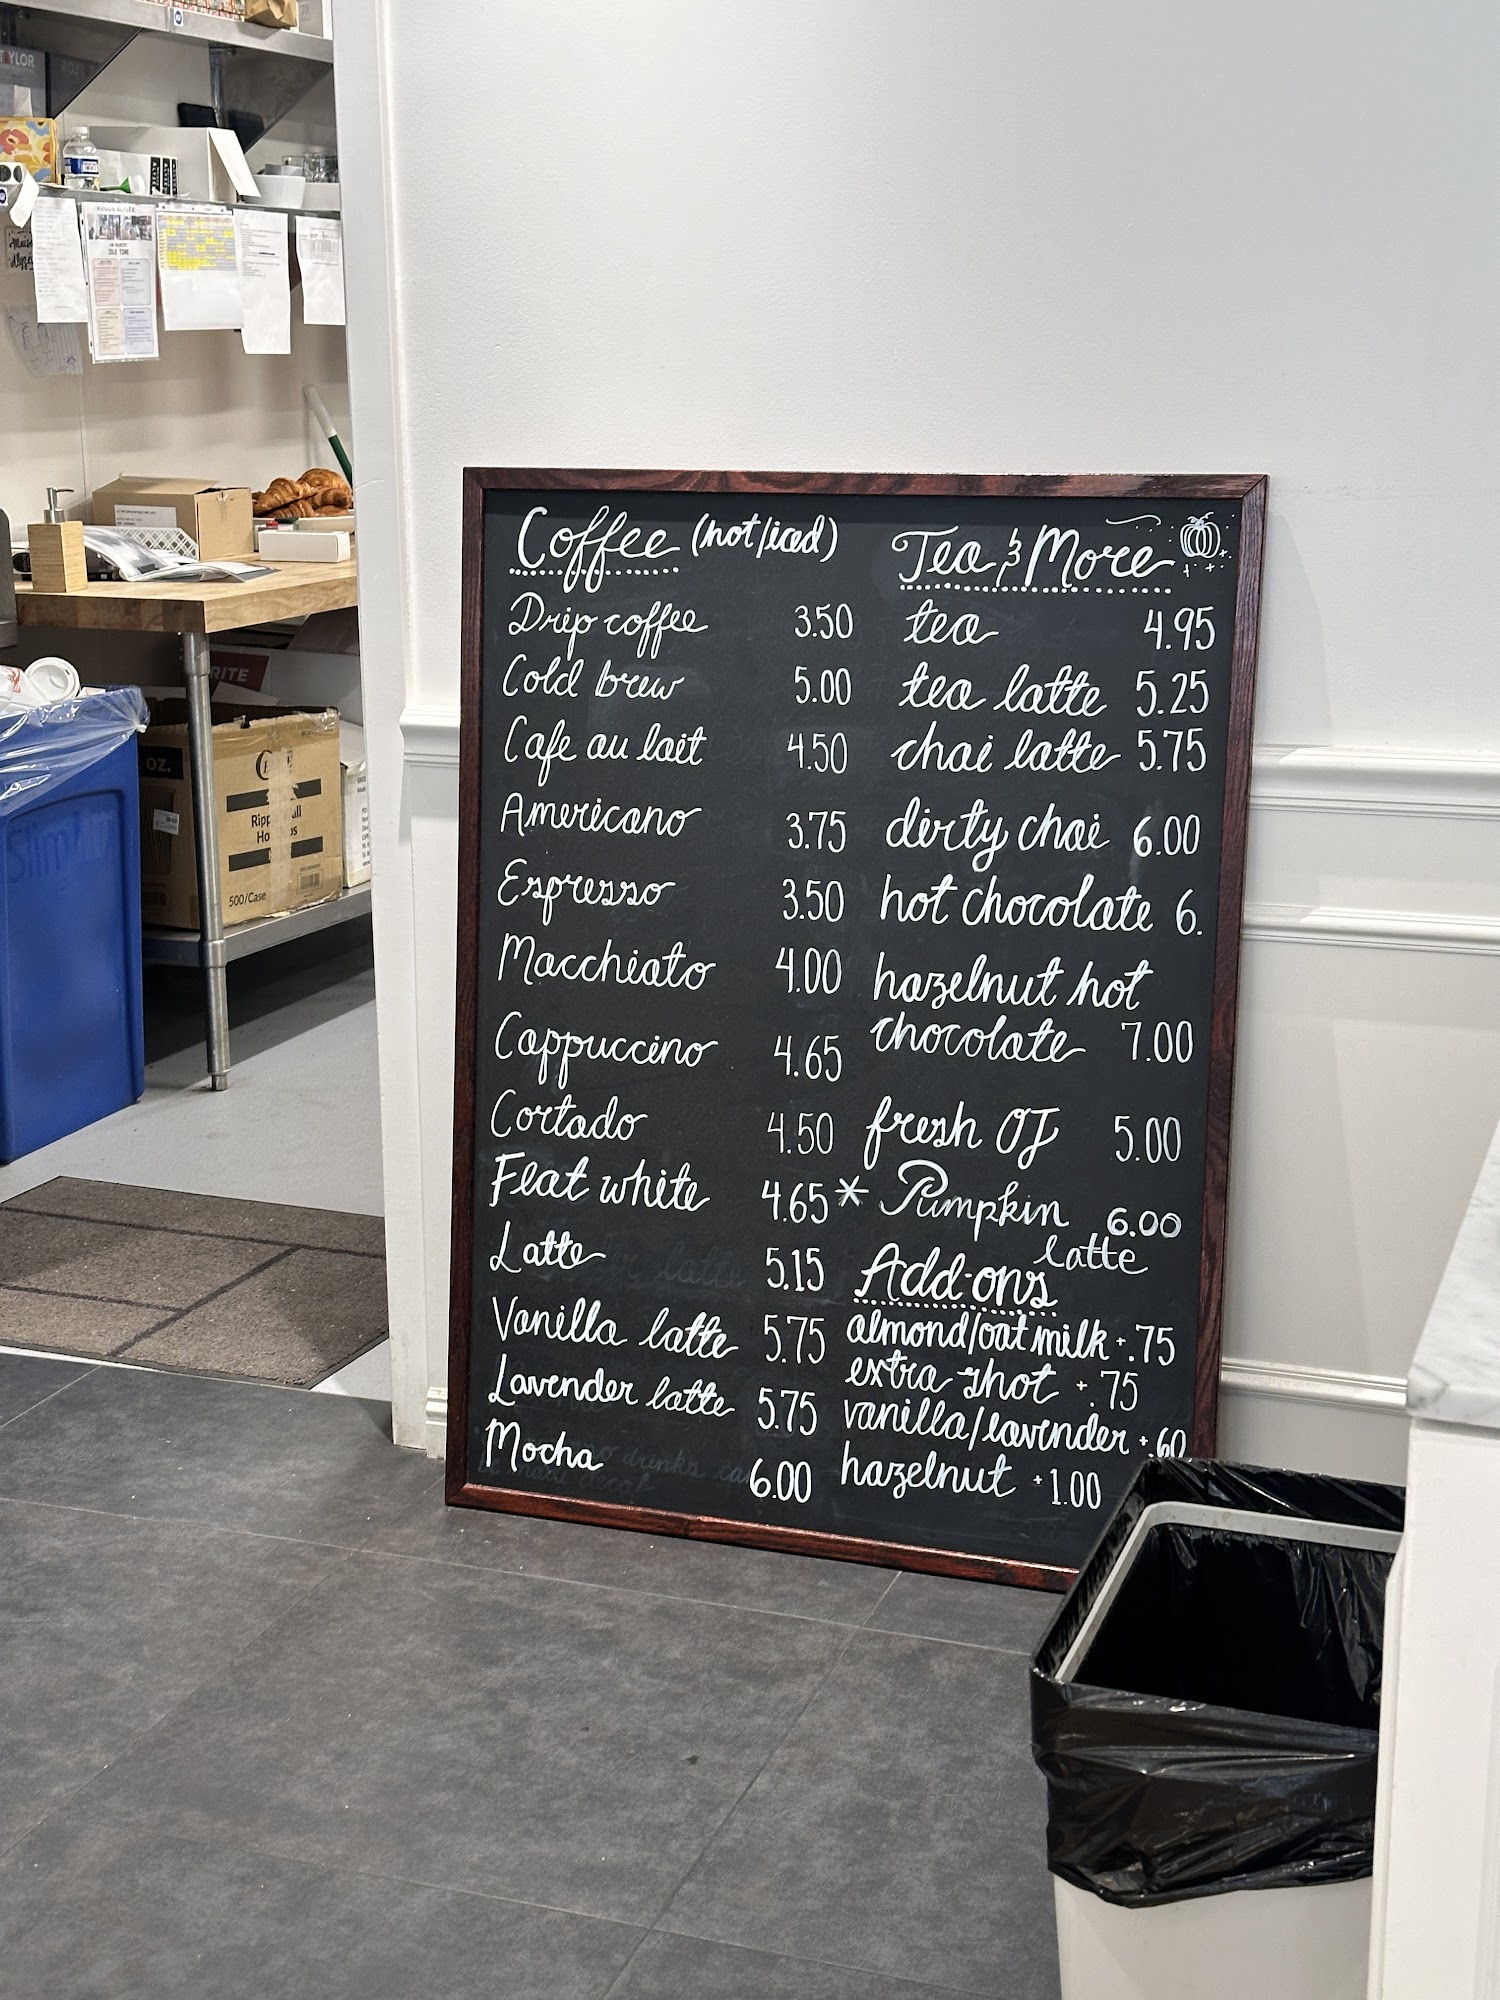 Coffee (hot/iced)
Drip coffee 3.50
Cold brew 5.00
Cafe au lait 4.50
Americano 3.75
Espresso 3.50
Macchiato 4.00
Cappuccino 4.65
Cortado 4.50
Flat white 4.65
Latte 5.15
Vanilla latte 5.75
Lavender latte 5.75
Mocha 6.00
Tea & More
tea 4.95
tea latte 5.25
chai latte 5.75
dirty chai 6.00
hot chocolate 6.
hazelnut hot
chocolate 7.00
fresh OJ 5.00
* Pumpkin 6.00
latte
Add-ons
almond/oat milk +.75
extra shot +.75
vanilla/lavender +.60
hazelnut +1.00
OZ.
500/Case